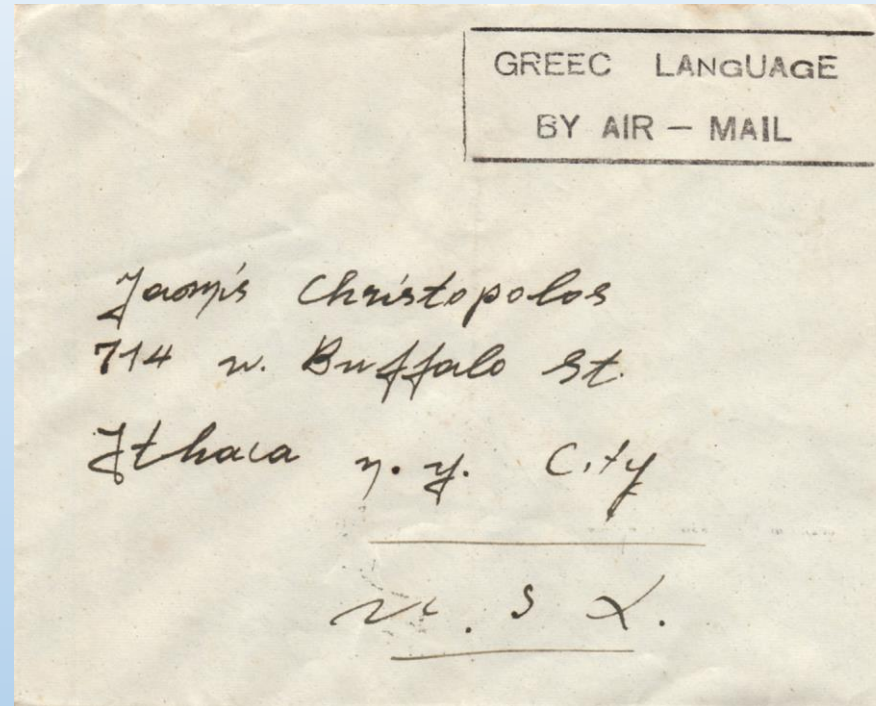 GREEC LANGUAGE
BY AIR – MAIL
Jaonys Christopolos
714 w. Buffalo St.
Ithaca n.y. City
U.S A.